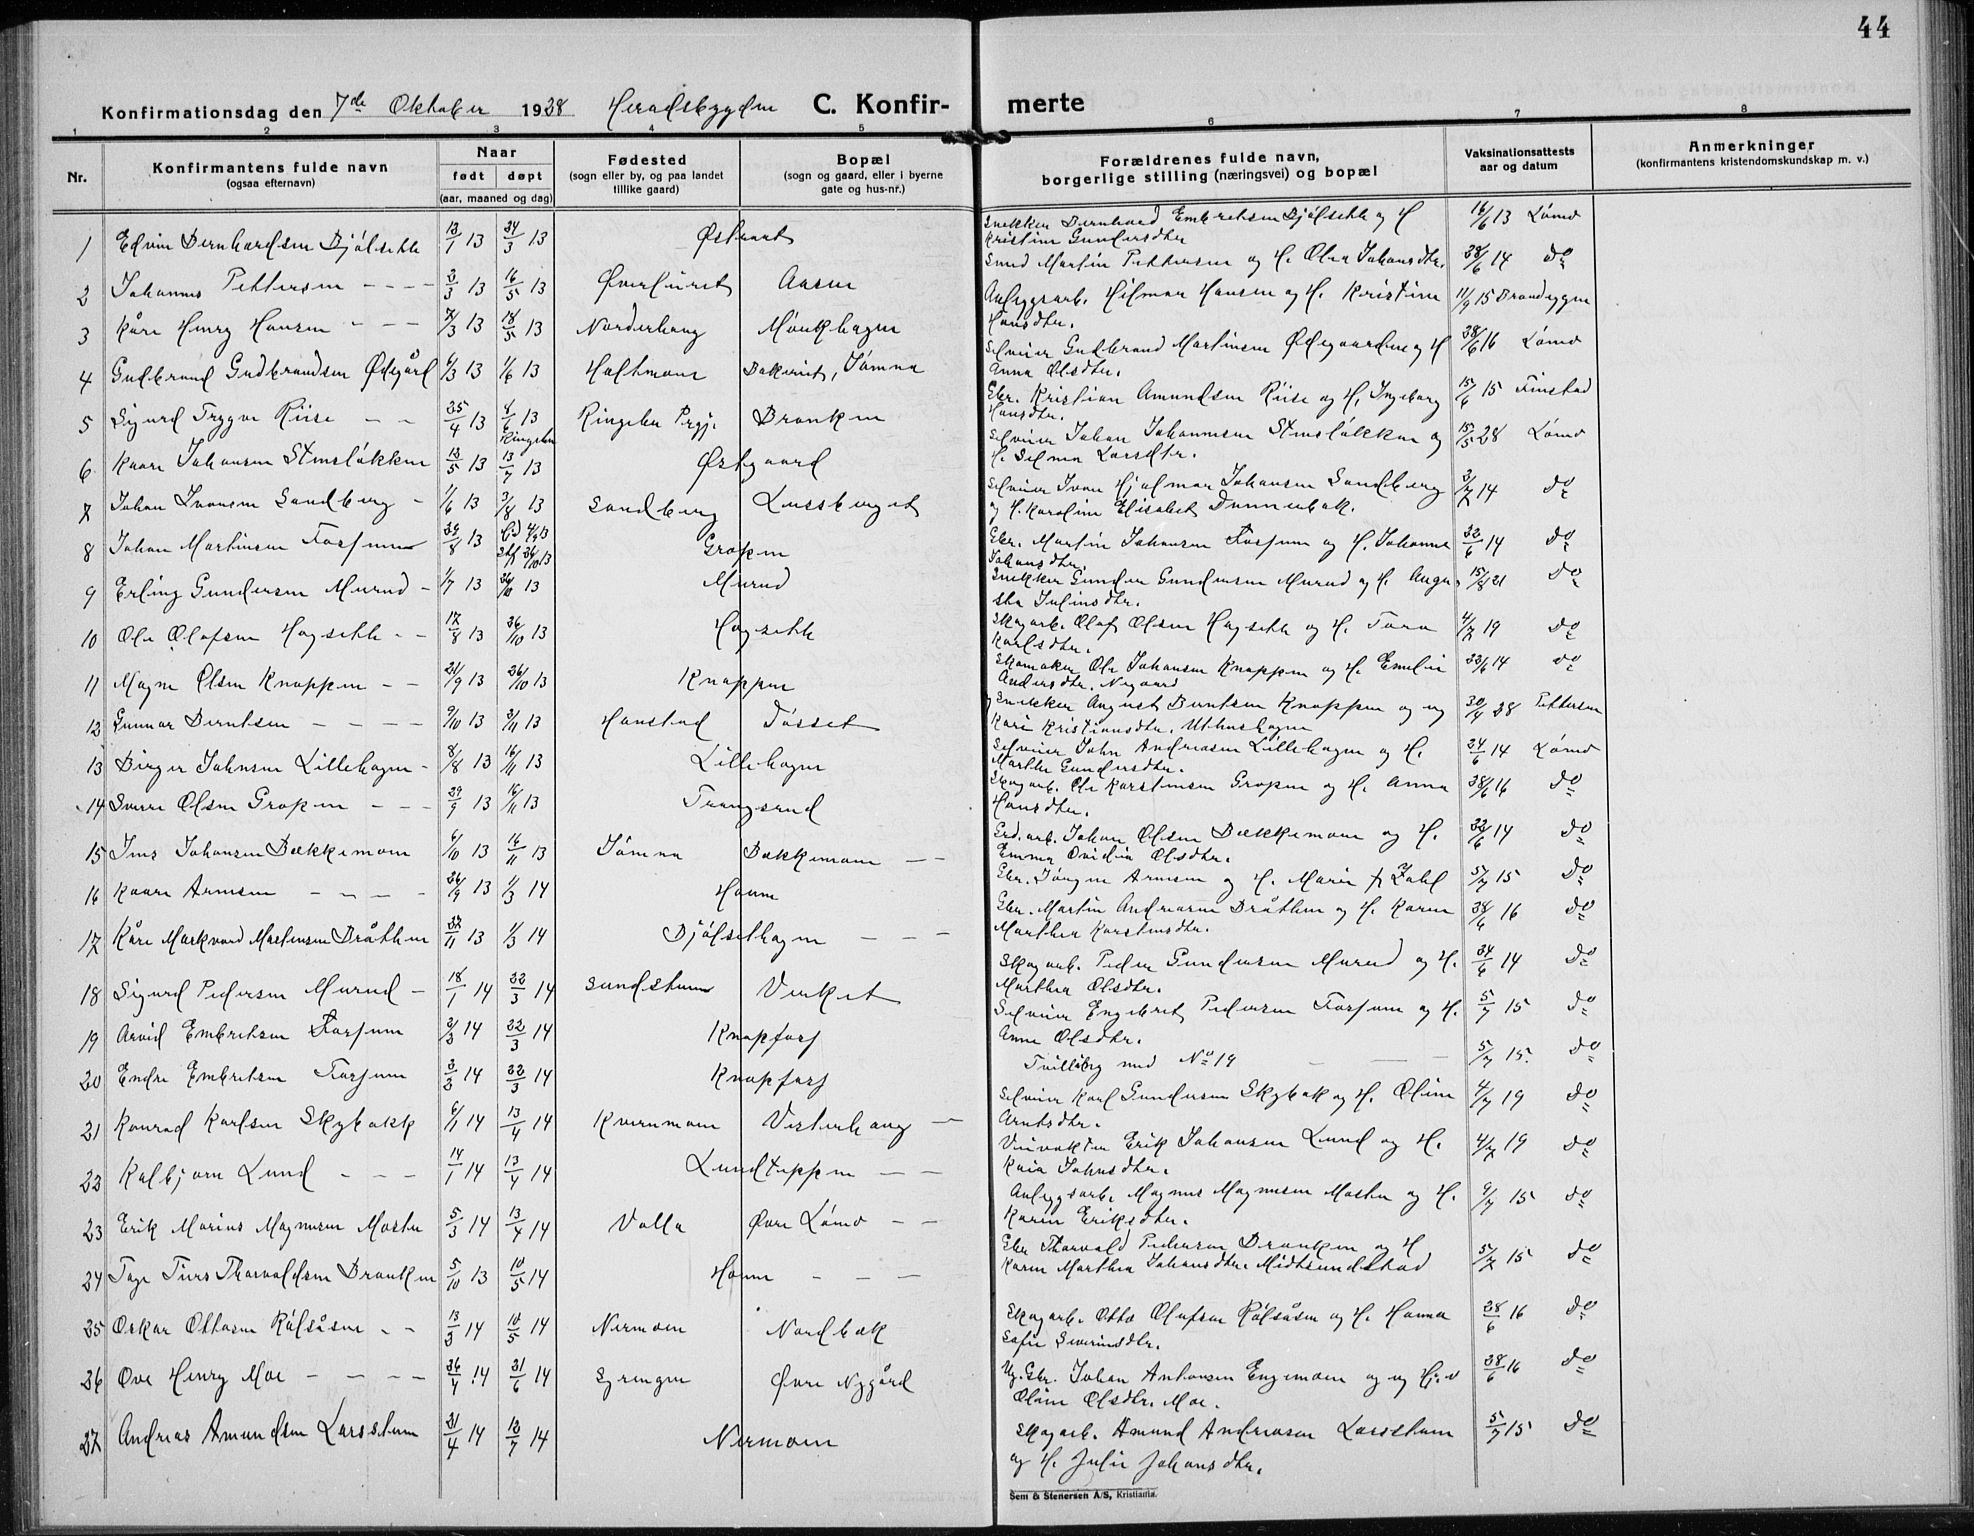 44
Konfirmationsdag den 7de Oktober 1928 Heradsbygden C. Konfir-
merte
1 2 3 4 5 6 7 8
Nr.
Konfirmantens fulde navn
(ogsaa efternavn)
Naar
født døpt
(aar, maaned og dag)
Fødested
(sogn eller by, og paa landet
tillike gaard)
Bopæl
(sogn og gaard, eller i byerne
gate og hus-nr.)
Forældrenes fulde navn,
borgerlige stilling (næringsvei) og bopæl
Vaksinationsattests
aar og datum
Anmerkninger
(konfirmantens kristendomskundskap m. v.)
1 Edvin Bernhardsen Bjølsethh 13/1 13 24/3 13
Snekker Bernhard Embretsen Bjølseth og H. Kristine Gundersdtr. 16/6 13 Lømo
2 Johannes Pettersen - - - - 3/3 13 16/5 13 Øverfuret Aasen
Smed Martin Pettersen og H. Olea Johansdtr. 28/6 14 do
3 Kåre Henry Hansen - - - 7/3 13 18/5 13 Norderhaug Monkhagen
Anlygsarb. Hilmar Hansen og H. Kristine Hansdtr. 11/9 15
4 Gudbrand Gudbrandsen Ødegård 6/3 13 1/6 13 Holtmoen Bakerud, Jømna
Selveier Gudbrand Martinsen Ødegaarden og H. Anna Olsdtr. 28/6 16 Lømo
5 Sigurd Trygve Riise - - 25/4 13 8/6 13 Ringebu Ringebu Prgj. Branken
Gbr. Kristian Amundsen Riise og H. Ingeborg Hansdtr. 15/6 15 Finstad
6 Kaare Johansen Stensløkken 13/5 13 13/7 13 Østgaard
Selveier Johan Johannesen Stensløkken og H. Selma Larsdtr. 15/5 28 Lømo
7 Johan Ivansen Sandberg - 1/6 13 3/8 13 Sandberg
Selveier Ivan Hjalmar Johansen Sandberg og H. Karoline Elisabet 3/7 14 do
8 Johan Martinsen Forfum 13 Gropen
Gbr. Martin Johansen Forfum og H. Johanne Johansdtr. 22/6 14 do
9 Erling Gundersen Murud - 1/7 13 26/10 13 Murud
Snekker Gunder Gundersen Murud og H. Augusta Juliusdtr. 15/8 21 do
10 Ole Olafsen Hagseth - - 17/8 13 26/10 13 Hagseth
Skogarb. Olaf Olsen Hagseth og H. Tora Karlsdtr. 4/7 19 do
11 Magne Olsen Knappen - - 21/9 13 26/10 13 Knappen
Skomaker Ole Johansen Knappen og H. Emelie Andersdtr. Nygaard 23/6 14 do
12 Gunnar Berntsen - - - - 9/10 13 2/11 13 Hanstad Tosset
Snekker August Berntsen Knappen og ug Kari Kristiansdtr. Uthushagen 30/4 28 Pettersen
13 Birger Johnsen Lillehagen - 8/8 13 16/11 13 Lillehagen
Selveier John Andreasen Lillehagen og H. Marthe Gundersdtr. 24/6 14 Lømo
14 Sverre Olsen Gropen - - - 29/9 13 16/11 13 Trangsrud
Skogarb. Ole Karstensen Gropen og H. Anna Hansdtr. 28/6 16 do
15 Jens Johansen Bækkemoen 6/10 13 16/11 13 Jømna Bækkemoen - -
Grd.arb. Johan Olsen Bækkemoen og H. Emma Ovidia Olsdtr. 22/6 14 do
16 Kaare Arnesen - - - - 26/9 13 1/3 14
Gbr. Jørgen Arnesen og H. Marie f. Zahl 5/7 15 do
17 Kåre Markvard Martinsen Bråthen 22/11 13 1/3 14 Bjølsethagen - - -
Gbr. Martin Andreasen Bråthen og H. Karen Marthea Karstensdtr. 28/6 16 do
18 Sigurd Pedersen Murud - 18/1 14 22/3 14 Sundstuen Verket
Skogarb. Peder Gundersen Murud og H. Marthea Olsdtr. 24/6 14 do
19 Arvid Embretsen Forfum 2/3 14 22/3 14 Knapfors
Selveier Engebret Pedersen Forfum og H. Anne Olsdtr. 5/7 15 do
20 Endre Embretsen Forfum 2/3 14 22/3 14 Knapfors
Tvillibrg med No 19 - - - 5/7 15. do
21 Konrad Karlsen Skybakk 6/1 14 13/4 14 Kvernmoen Vesterhaug -
Selveier Karl Gundersen Skybak og H. Oline Arntsdtr. 4/7 19 do
22 Kolbjørn Lund - - - 14/1 14 13/4 14 Lundtoppen - -
Erik Johansen Lund og H. Kaia Johnsdtr. 4/7 19 do
23 Erik Marius Magnusen Mostu 5/3 14 13/4 14 Volla Øvre Lømo - -
Anlygsarb. Magnus Magnusen Mostu og H. Karen Eriksdtr. 9/7 15 do
24 Thorvaldsen Branken 5/10 13 10/5 14 - - -
Gbr Thorvald Pedersen Branken og H Karen Marthea Johansdtr. Midtsundstad 5/7 15 do
25 Oskar Ottosen Rølsåsen - - 13/3 14 10/5 14 Nermoen Nordbak
Skogarb. Otto Olufsen Rølsåsen og H. Hanna Sofie Severinsdtr. 28/6 16 do
26 Ove Henry Moe - - - - 26/4 14 21/6 14 Syrengen Øvre Nygård
Ug. Gbr. Johan Antonsen Engemoen og ug Oline Olsdtr. Moe. 28/6 16 do
27 Andreas Amundsen Larsstuen 21/4 14 12/7 14 Nermoen
Skogarb. Amund Andreasen Larsstuen og H. Julie Johansdtr. 5/7 15 do
Sem & Stenersen A/S, Kristiania.